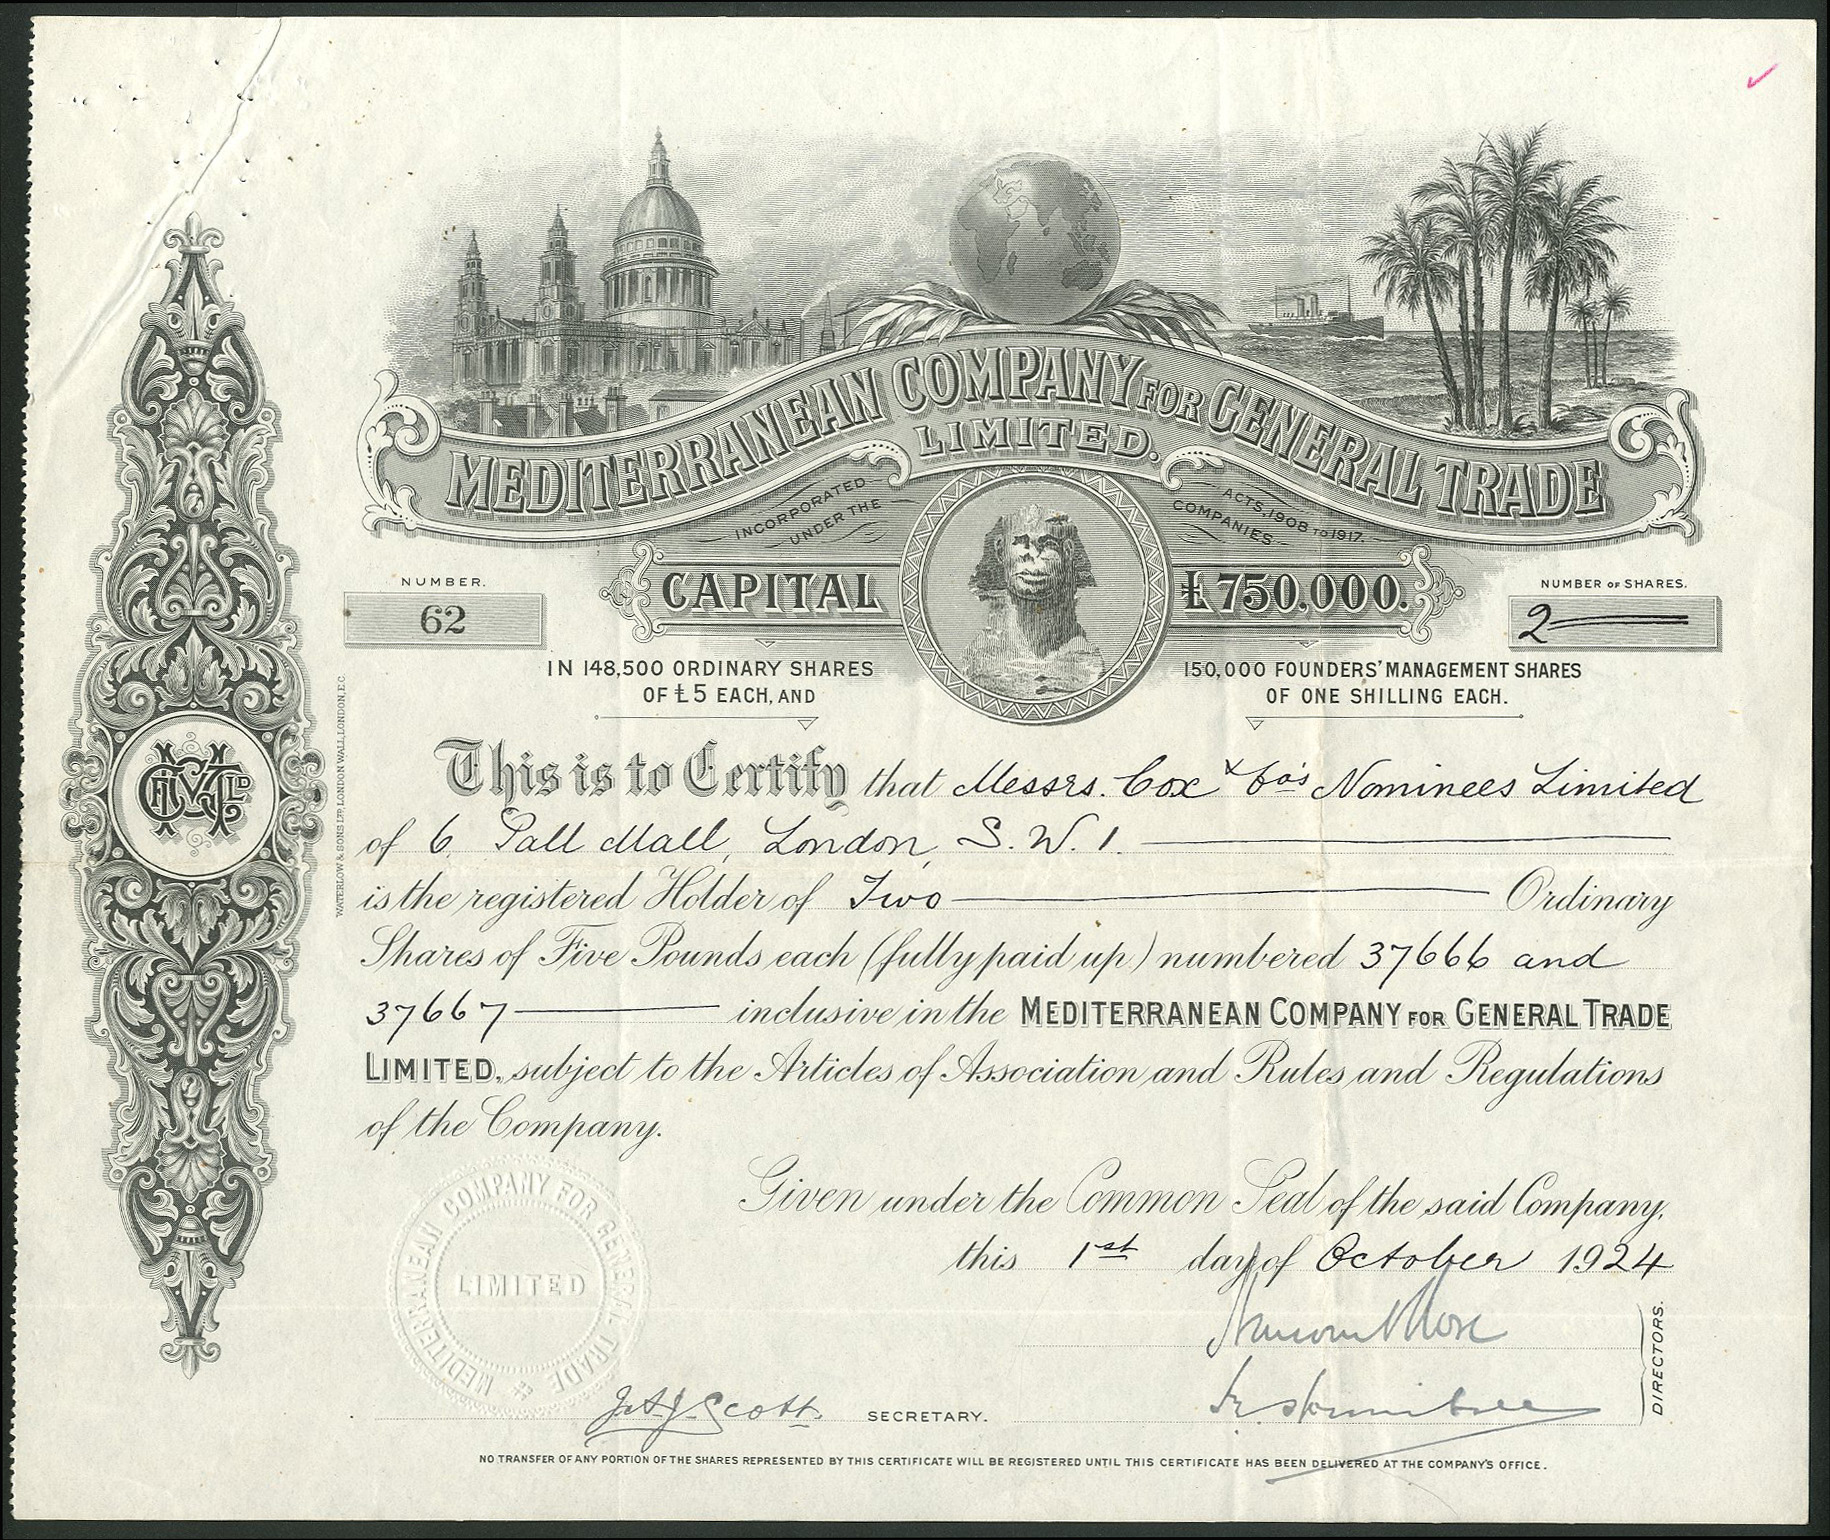 MEDITERRANEAN COMPANY FOR GENERAL TRADE
LIMITED.
INCORPORATED
UNDER THE
COMPANIES
ACTS, 1908 TO 1917.
NUMBER.
62
CAPITAL £750.000.
NUMBER OF SHARES.
2
IN 148,500 ORDINARY SHARES
OF £5 EACH, AND
150,000 FOUNDERS' MANAGEMENT SHARES
OF ONE SHILLING EACH.
This is to Certify that Messrs. Cox & Co's Nominees Limited
of 6. Pall Mall, London, S. W. 1.
is the registered Holder of Two Ordinary
Shares of Five Pounds each (fully paid up) numbered 37666 and
37667 inclusive in the MEDITERRANEAN COMPANY FOR GENERAL TRADE
LIMITED, subject to the Articles of Association and Rules and Regulations
of the Company.
Given under the Common Seal of the said Company,
this 1st day of October 1924
DIRECTORS.
J. A. J. Scott. SECRETARY.
MEDITERRANEAN COMPANY FOR GENERAL TRADE
LIMITED
NO TRANSFER OF ANY PORTION OF THE SHARES REPRESENTED BY THIS CERTIFICATE WILL BE REGISTERED UNTIL THIS CERTIFICATE HAS BEEN DELIVERED AT THE COMPANY'S OFFICE.
WATERLOW & SONS LTD, LONDON WALL, LONDON, E.C.